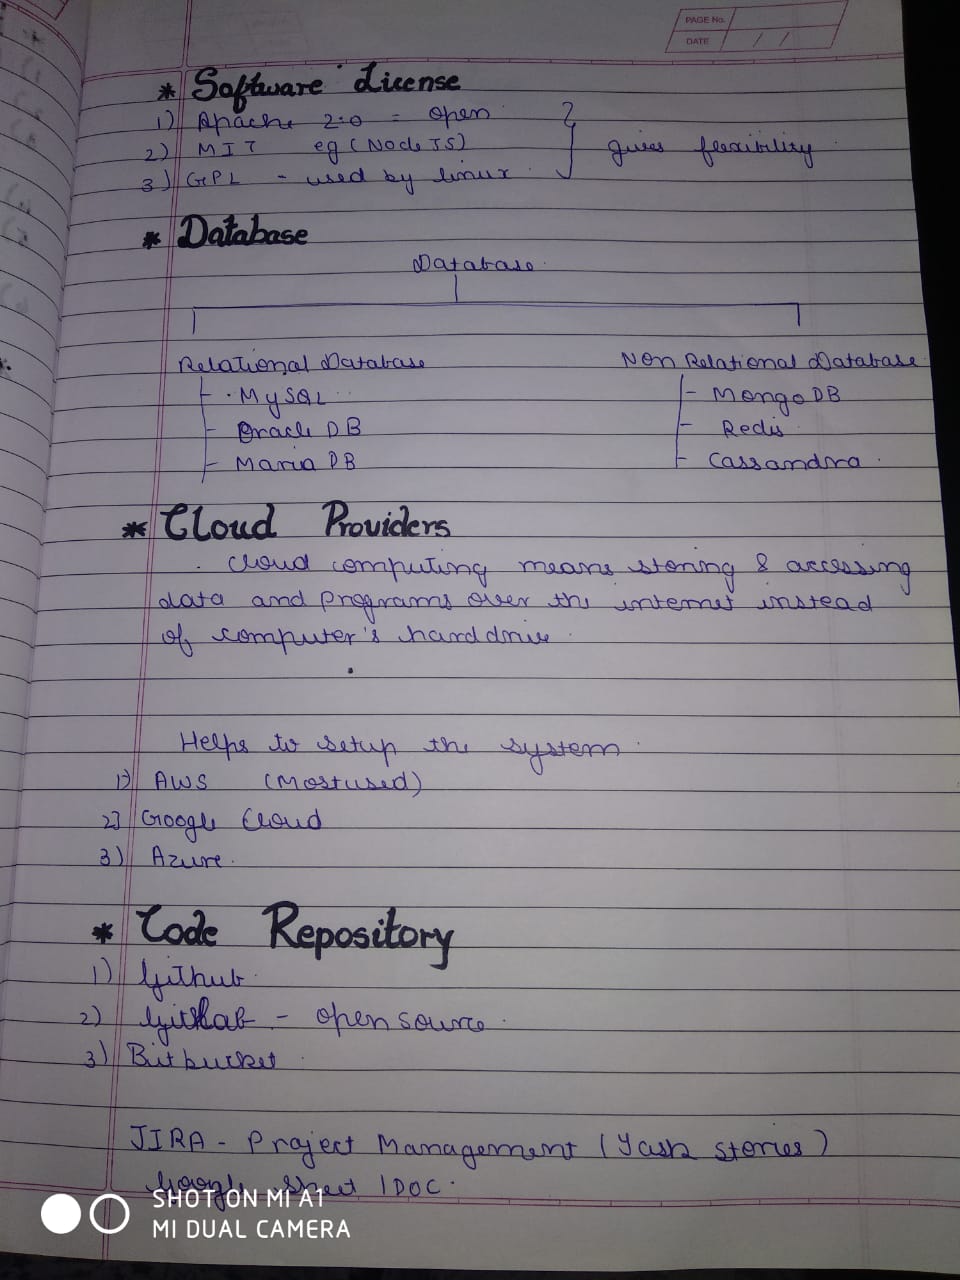 PAGE No.
DATE / /
* Software License
1) Apache 2.0 = open
2) MIT eg (Node JS) } gives flexibility
3) GPL - used by linux
* Database
Database
Relational Database Non Relational Database
- MySQL - MongoDB
- Oracle DB - Redis
- Maria DB - Cassandra
* Cloud Providers
Cloud computing means storing & accessing
data and programs over the internet instead
of computer's hard drive
Helps to setup the system
1) AWS (Most used)
2) Google Cloud
3) Azure.
* Code Repository
1) Github
2) Gitlab - open source
3) Bitbucket
JIRA - Project Management ( stories)
Google sheet | DOC.
SHOT ON MI A1
MI DUAL CAMERA